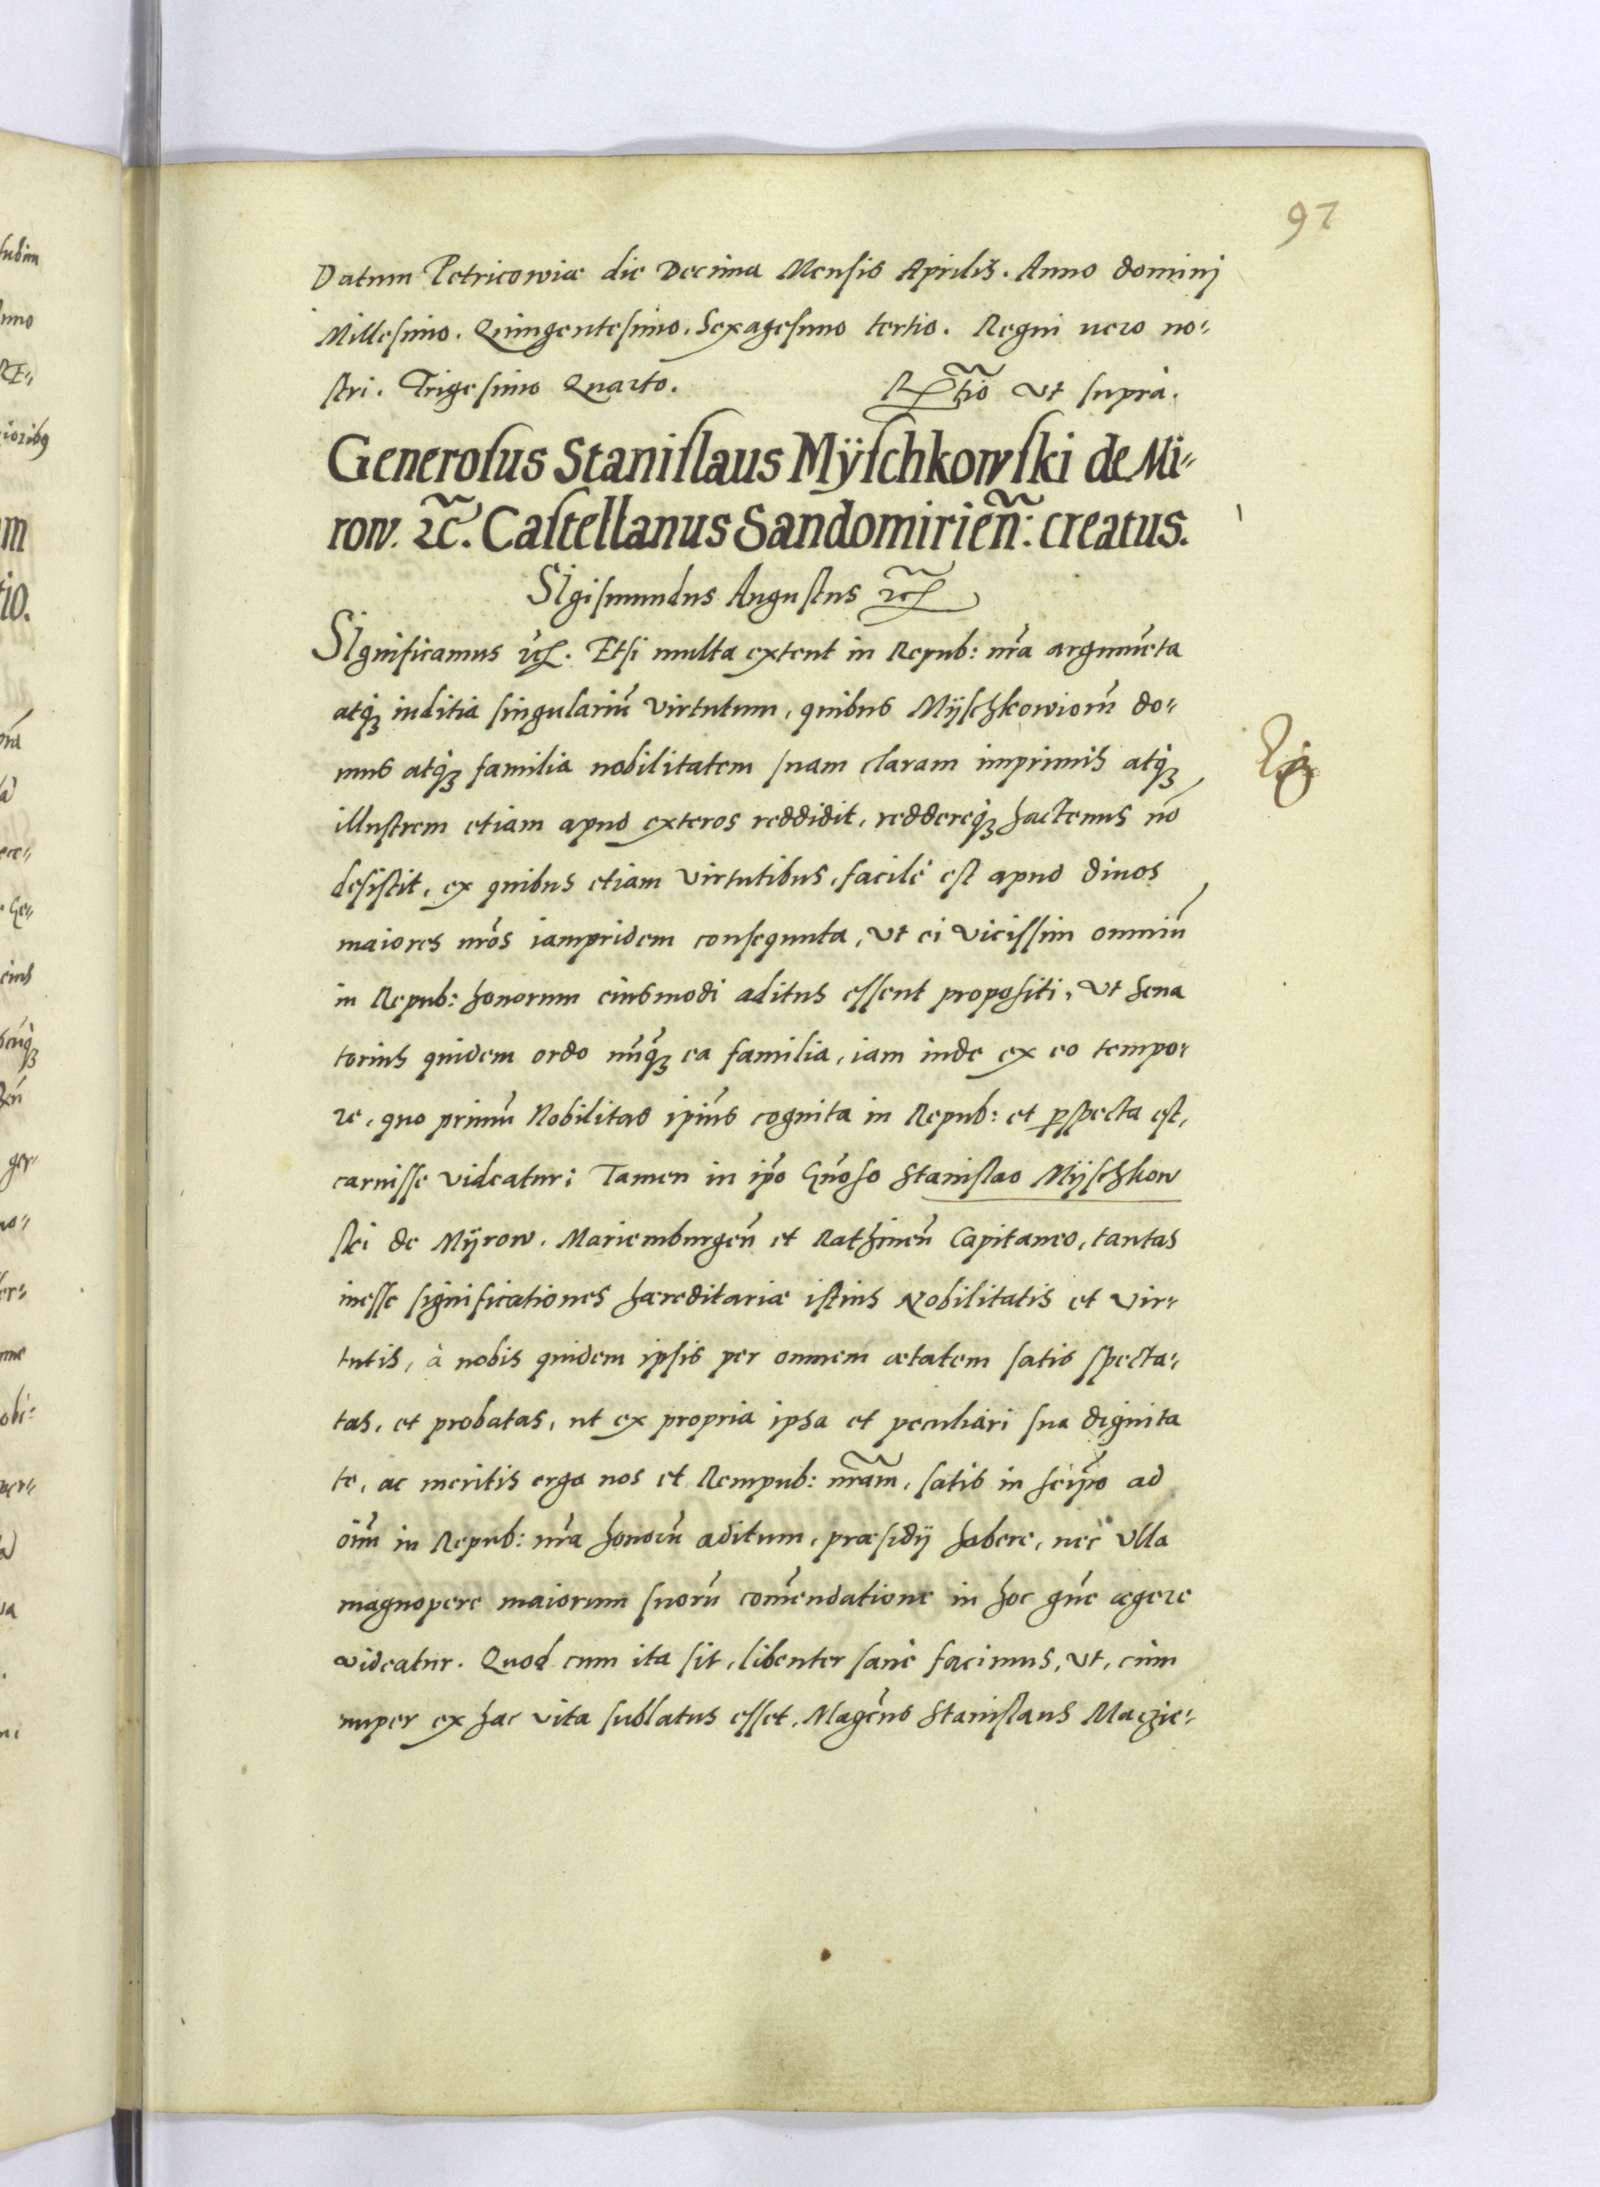 97
Datum Petricowiæ die Decima Mensis Aprilis. Anno dominj
Millesimo. Quingentesimo. Sexagesimo tertio. Regni vero no-
stri. Trigesimo Quarto. R̃tio Vt suprà.
Generosus Stanislaus Mÿschkowski de Mi-
row. ꝛc̃. Castellanus Sandomirieñ: creatus.
SIgismundus Augustus ꝛc̃
SIgnificamus ꝛc̃. Etsi multa extent in Repub: nr̃a argumẽta
atq̃ inditia singulariũ virtutum, quibus Mÿschkowiorũ do-
mus atq̃ familia nobilitatem suam claram imprimis atq̃
illustrem etiam apud exteros reddidit, reddereq̃ hactenus nõ
desistit, ex quibus etiam virtutibus, facilè est apud diuos
maiores nr̃os iampridem consequuta, Vt ei vicissim omniũ
in Repub: honorum eiusmodi aditus essent propositi, Vt Sena
torius quidem ordo nũq̃ ea familia, iam inde ex eo tempo-
re, quo primũ Nobilitas ip̃ius cognita in Repub: et ꝑspecta est,
caruisse videatur: Tamen in ip̃o Gño̴so Stanislao Mÿschkow
ski de Mÿrow. Mariemburgeñ et Rathineñ Capitaneo, tantas
inesse significationes hæreditariæ istius Nobilitatis et vir-
tutis, à nobis quidem ipsis per omnem ætatem satis specta-
tas, et probatas, ut ex propria ipsa et peculiari sua dignita
te, ac meritis erga nos et Rempub: nr̃am, satis in seip̃o ad
oĩm in Repub: nr̃a honorũ aditum, præsidÿ habere, nec Vlla
magnopere maiorum suorũ com̃endatione in hoc gñe ægere
videatur. Quod cum ita sit, libenter sanè facimus, Vt, cùm
nuper ex hac vita sublatus esset, Magcũs Stanislaus Maczie-